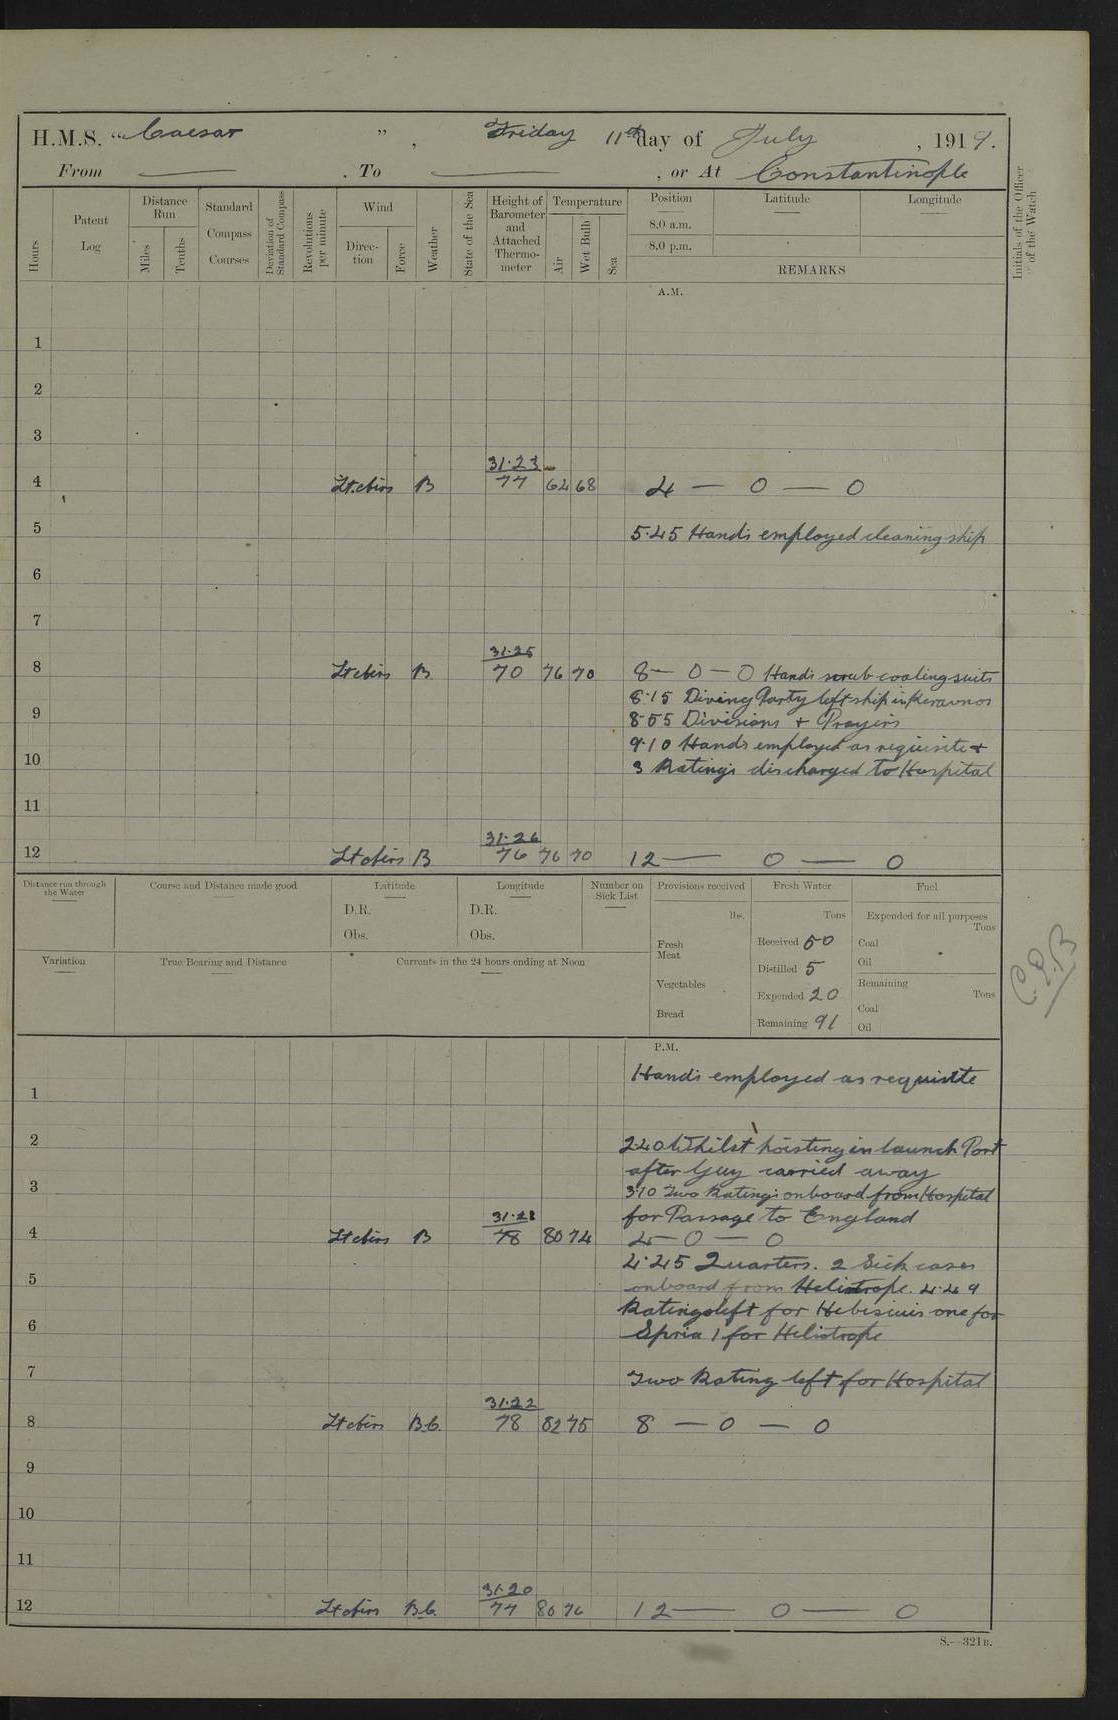 H.M.S. "Caesar", Friday 11th day of July, 1919.
From — . To — , or At Constantinople
Hours
Patent Log
Distance Run
Miles
Tenths
Standard Compass Courses
Deviation of Standard Compass
Revolutions per minute
Wind
Direction
Force
Weather
State of the Sea
Height of Barometer and Attached Thermometer
Temperature
Air
Wet Bulb
Sea
Position
Latitude
Longitude
8.0 a.m.
8.0 p.m.
REMARKS
Initials of the Officer of the Watch
A.M.
1
2
3
31.23
4 Lt airs B 77 64 68 4 — 0 — 0
5 5.45 Hands employed cleaning ship
6
7
31.25
8 Lt airs B 70 76 70 8 — 0 — 0 Hands scrub coaling suits
8.15 Diving Party left ship in Keravnos
9 8.55 Divisions + Prayers
9.10 Hands employed as requisite +
10 3 Ratings discharged to Hospital
11
31.26
12 Lt airs B 76 76 70 12 — 0 — 0
Distance run through the Water
Course and Distance made good
Latitude
D.R.
Obs.
Longitude
D.R.
Obs.
Number on Sick List
Provisions received
lbs.
Fresh Meat
Vegetables
Bread
Fresh Water
Tons
Received 50
Distilled 5
Expended 20
Remaining 91
Fuel
Expended for all purposes
Tons
Coal
Oil
Remaining
Tons
Coal
Oil
Variation
True Bearing and Distance
Currents in the 24 hours ending at Noon
P.M.
Hands employed as requisite
1
2 2.40 Whilst hoisting in launch Port
after Guy carried away
3 3.10 Two Ratings onboard from Hospital
for Passage to England
31.21
4 Lt airs B 78 80 74 4 — 0 — 0
4.45 Quarters. 2 Sick cases
5 onboard from Heliotrope. 4.49
Ratings left for Hebiscuis one for
6 Spria 1 for Heliotrope
7 Two Rating left for Hospital
31.22
8 Lt airs B.C. 78 82 75 8 — 0 — 0
9
10
11
31.20
12 Lt airs B.C. 77 80 76 12 — 0 — 0
S.—321B.